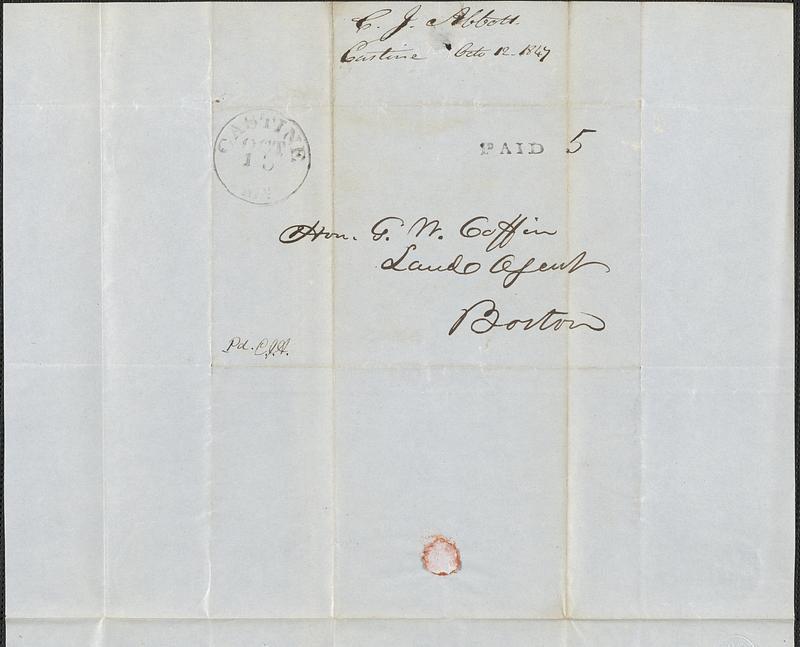 C. J. Abbott.
Castine Octo 12. 1847
CASTINE
OCT
13
PAID 5
Hon. G. W. Coffin
Land Agent
Boston
Pd. C.J.A.